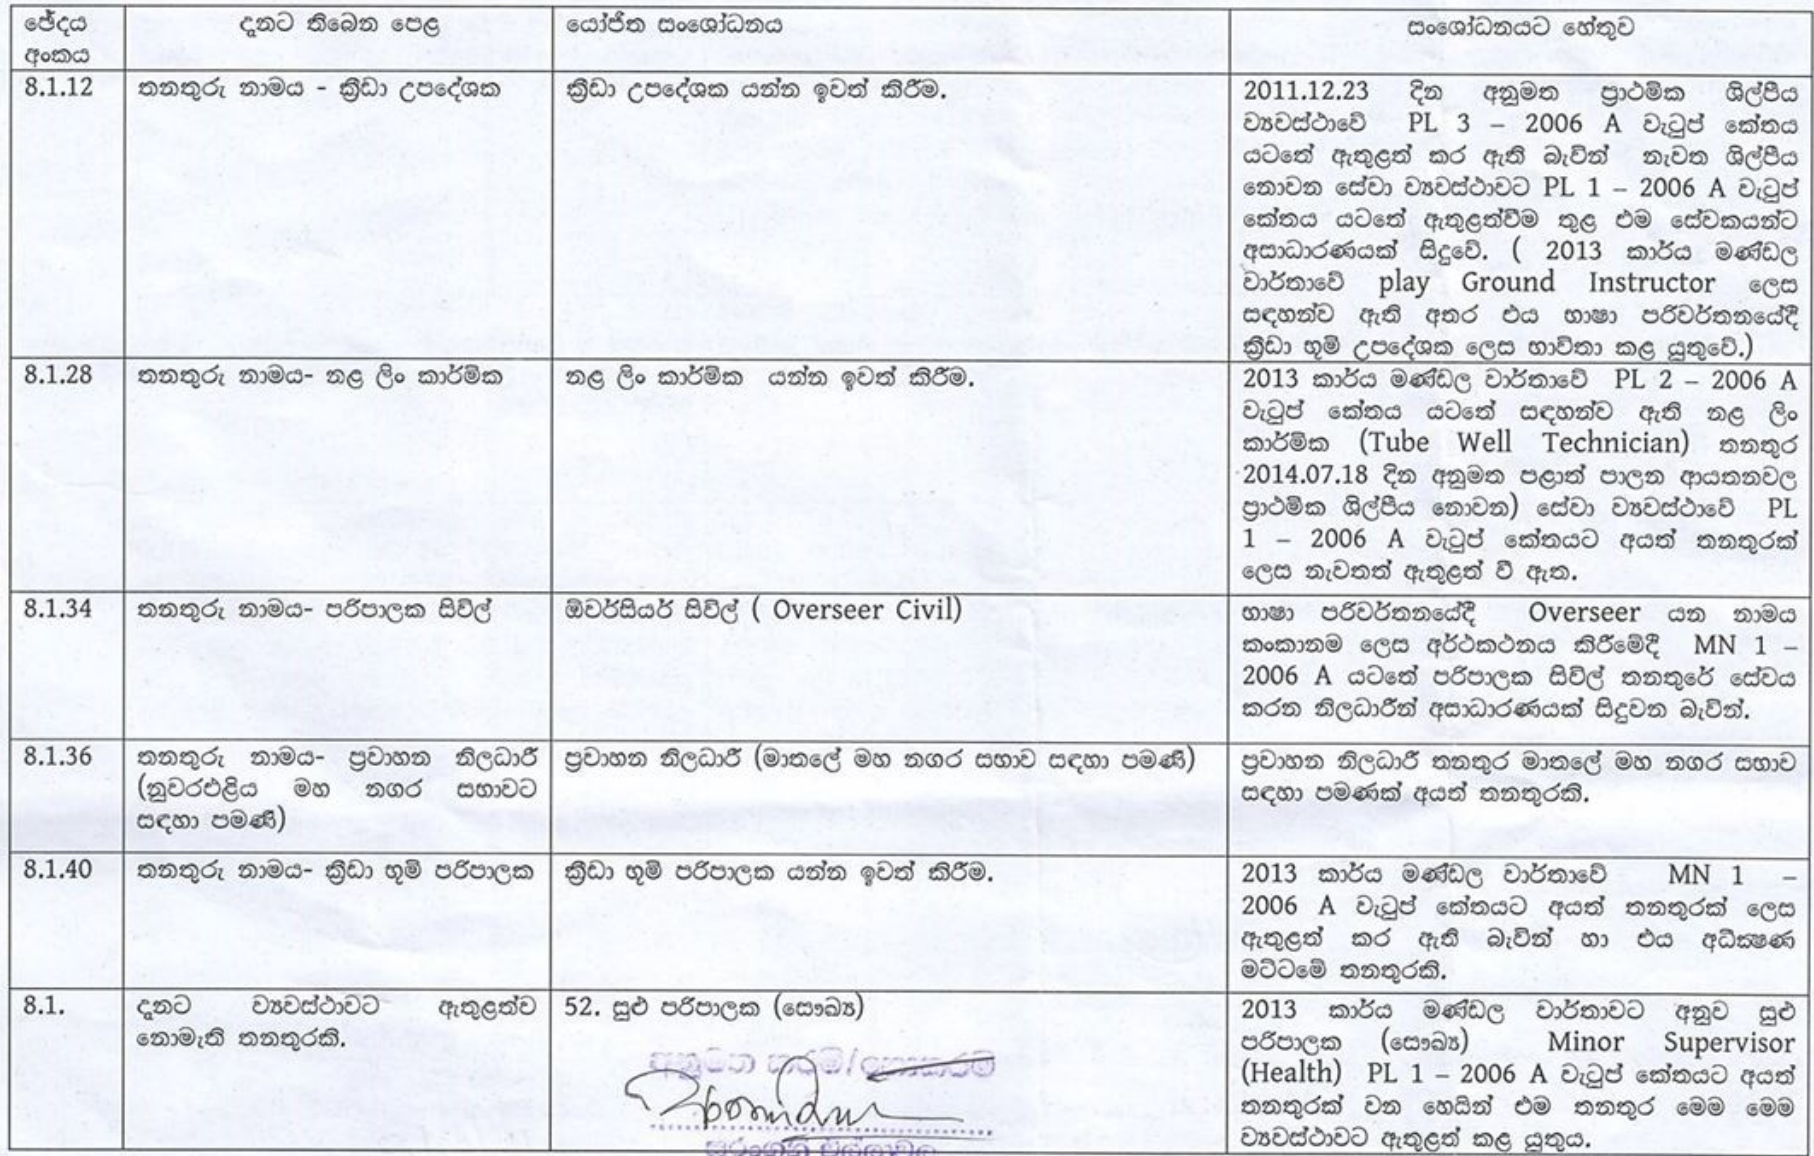 ඡේදය අංකය
දැනට තිබෙන පෙළ
යෝජිත සංශෝධනය
සංශෝධනයට හේතුව
8.1.12
තනතුරු නාමය - ක්‍රීඩා උපදේශක
ක්‍රීඩා උපදේශක යන්න ඉවත් කිරීම.
2011.12.23 දින අනුමත ප්‍රාථමික ශිල්පීය
ව්‍යවස්ථාවේ PL 3 – 2006 A වැටුප් කේතය
යටතේ ඇතුළත් කර ඇති බැවින් නැවත ශිල්පීය
නොවන සේවා ව්‍යවස්ථාවට PL 1 – 2006 A වැටුප්
කේතය යටතේ ඇතුළත්වීම තුළ එම සේවකයන්ට
අසාධාරණයක් සිදුවේ. ( 2013 කාර්ය මණ්ඩල
වාර්තාවේ play Ground Instructor ලෙස
සඳහන්ව ඇති අතර එය භාෂා පරිවර්තනයේදී
ක්‍රීඩා භූමි උපදේශක ලෙස භාවිතා කළ යුතුවේ.)
8.1.28
තනතුරු නාමය- නළ ලිං කාර්මික
නළ ලිං කාර්මික යන්න ඉවත් කිරීම.
2013 කාර්ය මණ්ඩල වාර්තාවේ PL 2 – 2006 A
වැටුප් කේතය යටතේ සඳහන්ව ඇති නළ ලිං
කාර්මික (Tube Well Technician) තනතුර
2014.07.18 දින අනුමත පළාත් පාලන ආයතනවල
ප්‍රාථමික ශිල්පීය නොවන) සේවා ව්‍යවස්ථාවේ PL
1 – 2006 A වැටුප් කේතයට අයත් තනතුරක්
ලෙස නැවතත් ඇතුළත් වී ඇත.
8.1.34
තනතුරු නාමය- පරිපාලක සිවිල්
ඕවර්සියර් සිවිල් ( Overseer Civil)
භාෂා පරිවර්තනයේදී Overseer යන නාමය
කංකානම ලෙස අර්ථකථනය කිරීමේදී MN 1 –
2006 A යටතේ පරිපාලක සිවිල් තනතුරේ සේවය
කරන නිලධාරීන් අසාධාරණයක් සිදුවන බැවින්.
8.1.36
තනතුරු නාමය- ප්‍රවාහන නිලධාරී
(නුවරඑළිය මහ නගර සභාවට
සඳහා පමණි)
ප්‍රවාහන නිලධාරී (මාතලේ මහ නගර සභාව සඳහා පමණි)
ප්‍රවාහන නිලධාරී තනතුර මාතලේ මහ නගර සභාව
සඳහා පමණක් අයත් තනතුරකි.
8.1.40
තනතුරු නාමය- ක්‍රීඩා භූමි පරිපාලක
ක්‍රීඩා භූමි පරිපාලක යන්න ඉවත් කිරීම.
2013 කාර්ය මණ්ඩල වාර්තාවේ MN 1 –
2006 A වැටුප් කේතයට අයත් තනතුරක් ලෙස
ඇතුළත් කර ඇති බැවින් හා එය අධීක්‍ෂණ
මට්ටමේ තනතුරකි.
8.1.
දැනට ව්‍යවස්ථාවට ඇතුළත්ව
නොමැති තනතුරකි.
52. සුළු පරිපාලක (සෞඛ්‍ය)
අනුමත කරමි/නොකරමි
2013 කාර්ය මණ්ඩල වාර්තාවට අනුව සුළු
පරිපාලක (සෞඛ්‍ය) Minor Supervisor
(Health) PL 1 – 2006 A වැටුප් කේතයට අයත්
තනතුරක් වන හෙයින් එම තනතුර මෙම මෙම
ව්‍යවස්ථාවට ඇතුළත් කළ යුතුය.